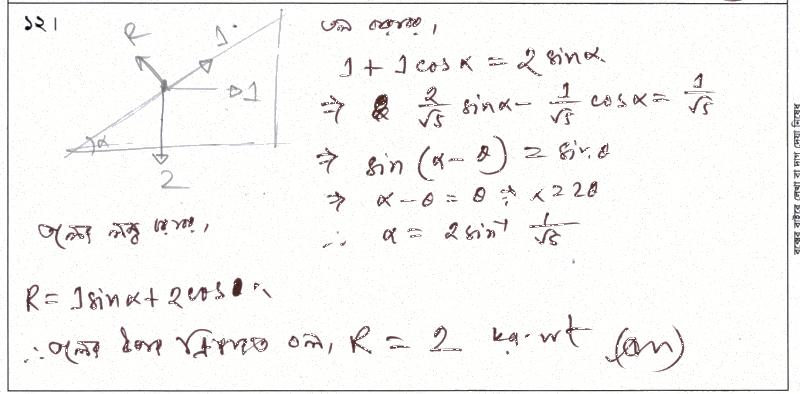 ১২।
R
1
1
α
2
তল বরাবর,
1 + 1 cos α = 2 sin α
⇒ 2/√5 sin α − 1/√5 cos α = 1/√5
⇒ sin (α − θ) = sin θ
⇒ α − θ = θ ⇒ α = 2θ
∴ α = 2 sin⁻¹ 1/√5
তলের লম্ব বরাবর,
R = 1 sin α + 2 cos α
∴ তলের উপর ক্রিয়ারত বল, R = 2 kg-wt (Ans)
বক্সের বাইরে লেখা বা দাগ দেয়া নিষেধ